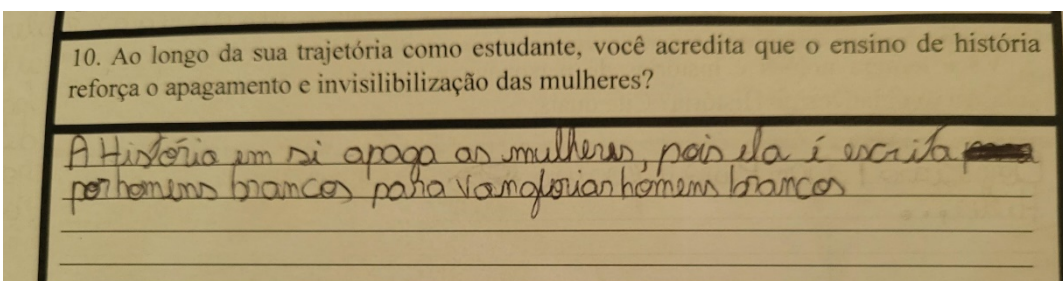 10. Ao longo da sua trajetória como estudante, você acredita que o ensino de história
reforça o apagamento e invisilibilização das mulheres?
A História em si apaga as mulheres, pois ela é escrita
por homens brancos para vangloriar homens brancos